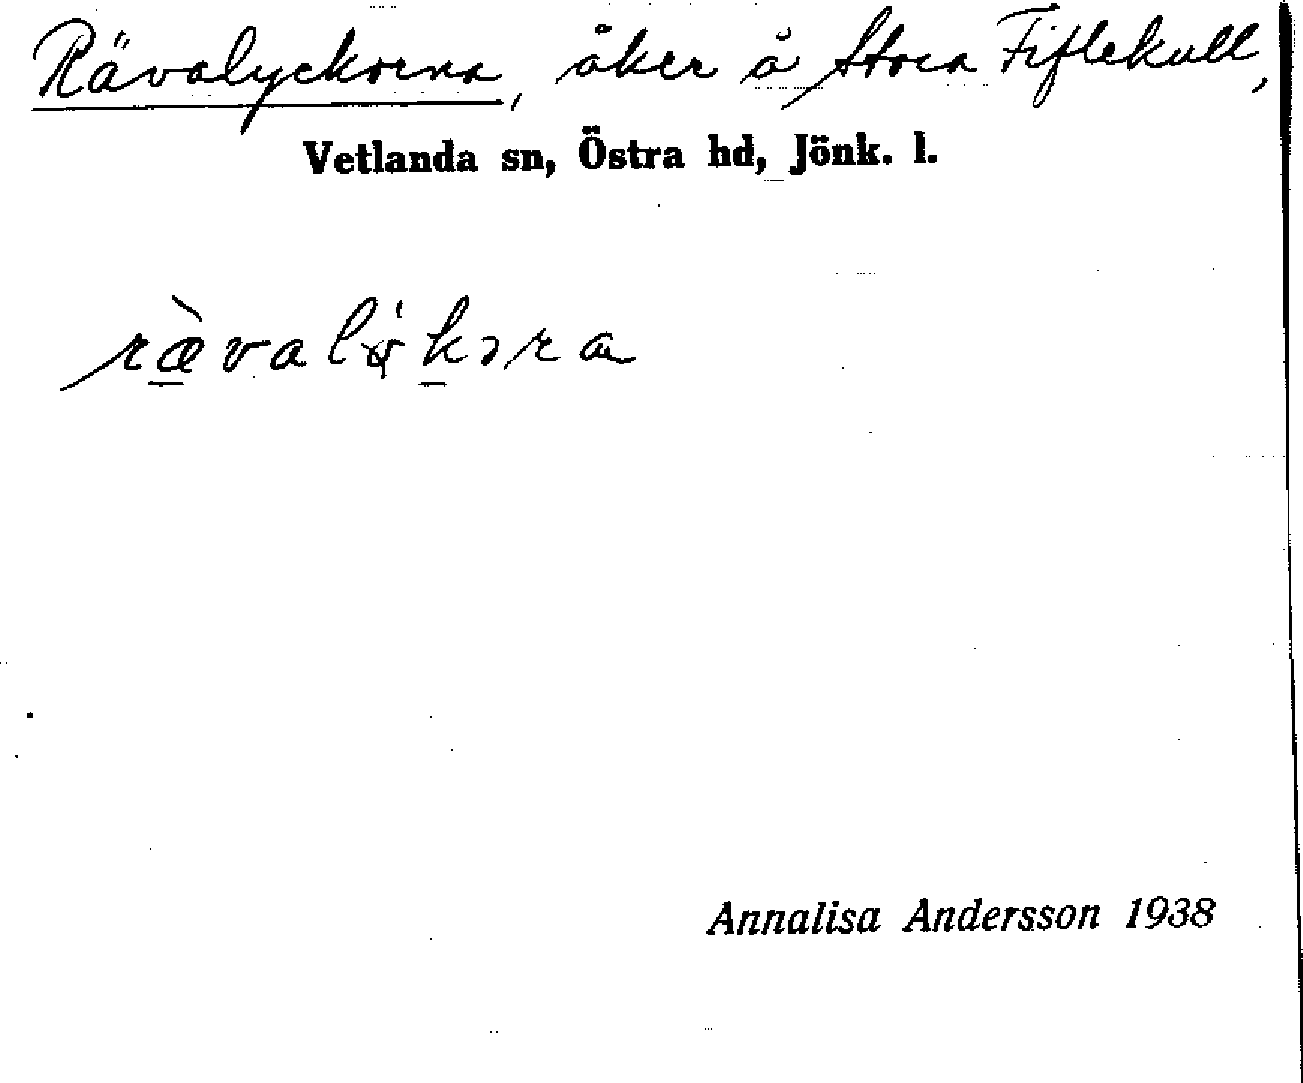 Rävalyckorna, åker å Stora Fiflekull,
Vetlanda sn, Östra hd, Jönk. l.
Annalisa Andersson 1938